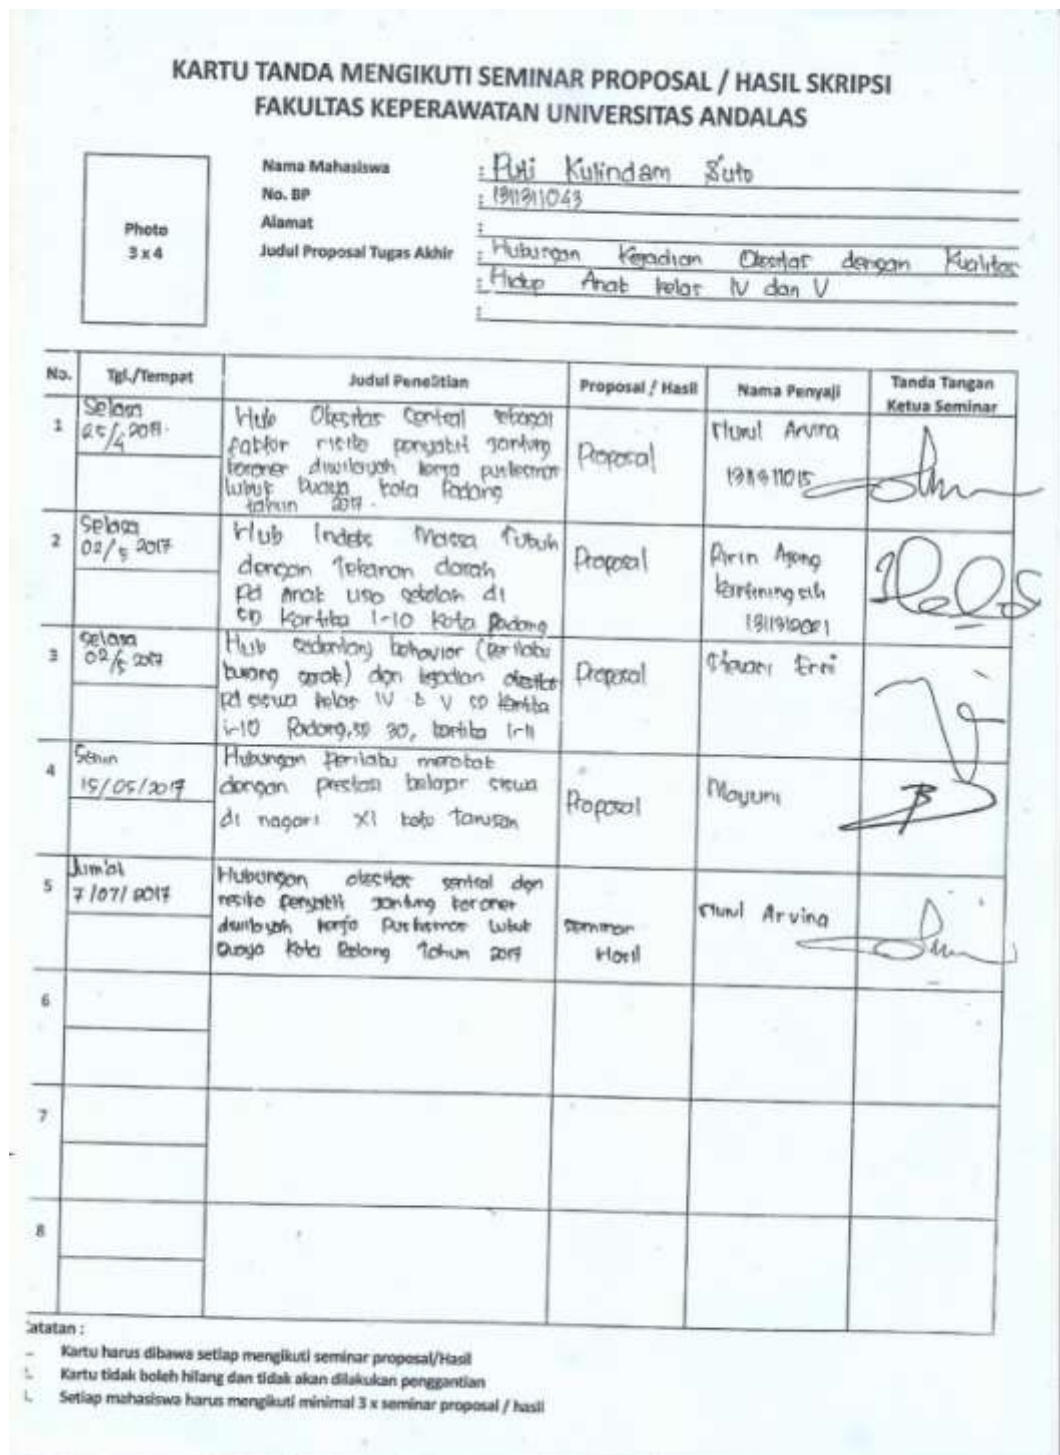 KARTU TANDA MENGIKUTI SEMINAR PROPOSAL / HASIL SKRIPSI
FAKULTAS KEPERAWATAN UNIVERSITAS ANDALAS
Photo
3 x 4
Nama Mahasiswa : Puti Kulindam Suto
No. BP : 1311311043
Alamat :
Judul Proposal Tugas Akhir : Hubungan Kejadian Obesitas dengan Kualitas
: Hidup Anak kelas IV dan V
:
No. Tgl./Tempat Judul Penelitian Proposal / Hasil Nama Penyaji Tanda Tangan Ketua Seminar
1 Selasa
25/4 2017.
Hub Obesitas Central sebagai
faktor risiko penyakit jantung
koroner diwilayah kerja puskesmas
lubuk buaya kota Padang
tahun 2017.
Proposal
Nurul Arvina
2 Selasa
02/5 2017
Hub Indeks Massa Tubuh
dengan Tekanan darah
pd Anak usia sekolah di
SD Kartika 1-10 Kota Padang
Proposal
3 Selasa
02/5 2017
Hub sedentary behavior (perilaku
kurang gerak) dgn kejadian obesitas
pd siswa kelas IV & V SD Kartika
1-10 Padang, SD 30, kartika 1-11
Proposal
4 Senin
15/05/2017
Hubungan Perilaku merokok
dengan prestasi belajar siswa
di nagari XI koto Tarusan
Proposal
Mayuni
5 Jum'at
7/07/2017
Hubungan obesitas sentral dgn
resiko penyakit jantung koroner
diwilayah kerja Puskesmas Lubuk
Buaya Kota Padang Tahun 2017
Seminar
Hasil
Nurul Arvina
6
7
8
Catatan :
Kartu harus dibawa setiap mengikuti seminar proposal/Hasil
Kartu tidak boleh hilang dan tidak akan dilakukan penggantian
Setiap mahasiswa harus mengikuti minimal 3 x seminar proposal / hasil